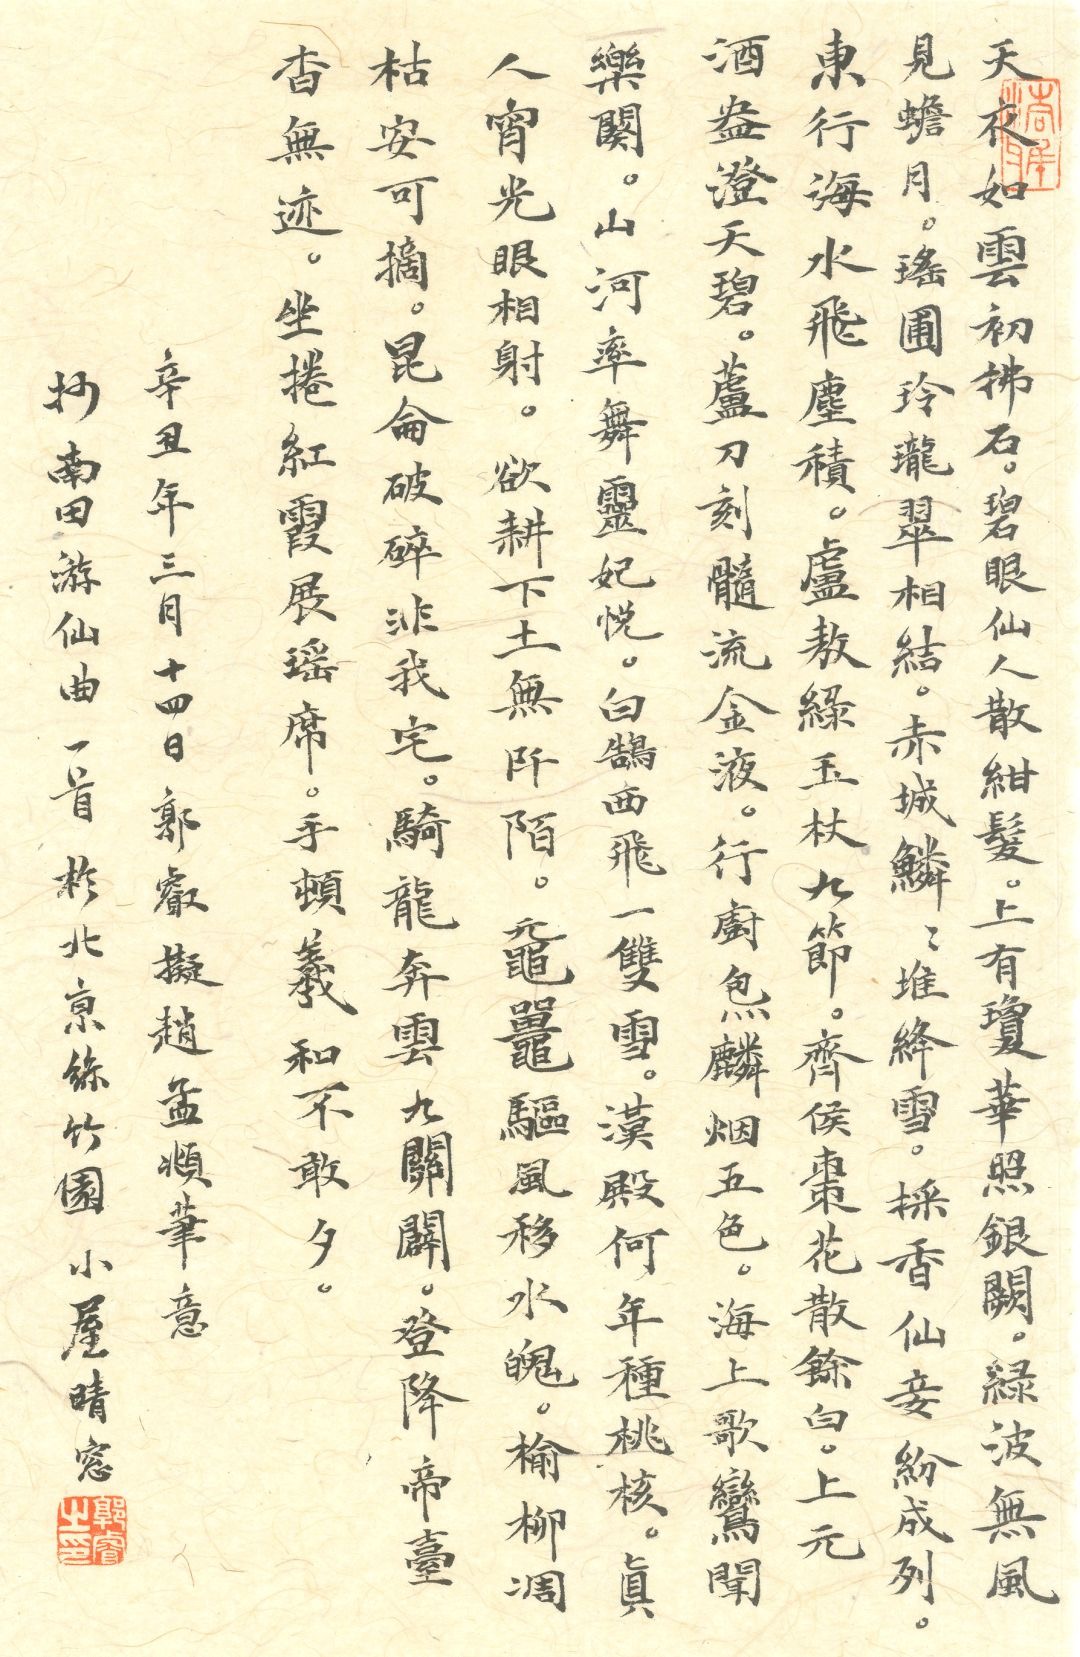 天衣如雲初拂石。碧眼仙人散紺髮。上有瓊華照銀闕。綠波無風
見蟾月。瑤圃玲瓏翠相結。赤城鱗〻堆絳雪。採香仙妾紛成列。
東行海水飛塵積。盧敖綠玉杖九節。齊侯棗花散餘白。上元
酒盎澄天碧。蘆刀刻髓流金液。行廚炰麟烟五色。海上歌鸞聞
樂闋。山河率舞靈妃悅。白鵠西飛一雙雪。漢殿何年種桃核。真
人宵光眼相射。欲耕下土無阡陌。黿鼉驅風移水魄。榆柳凋
枯安可摘。昆侖破碎非我宅。騎龍奔雲九關闢。登降帝臺
杳無迹。坐捲紅霞展瑤席。手頓羲和不敢夕。
辛丑年三月十四日郭叡擬趙孟頫筆意
抄南田游仙曲一首於北京絲竹園小屋晴窓
郭睿之印